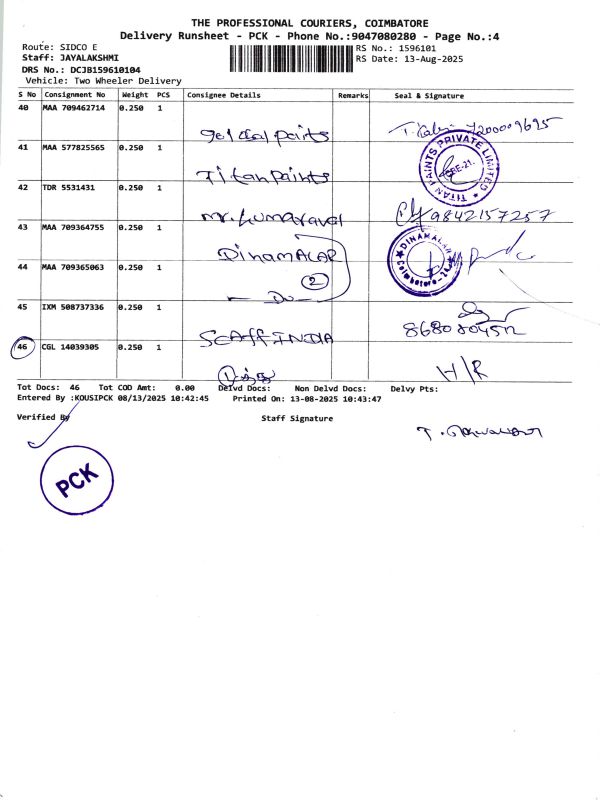 THE PROFESSIONAL COURIERS, COIMBATORE
Delivery Runsheet - PCK - Phone No.:9047080280 - Page No.:4
Route: SIDCO E
RS No.: 1596101
Staff: JAYALAKSHMI
RS Date: 13-Aug-2025
DRS No.: DCJB159610104
Vehicle: Two Wheeler Delivery
S No Consignment No Weight PCS Consignee Details Remarks Seal & Signature
40 MAA 709462714 0.250 1
7200009695
41 MAA 577825565 0.250 1
Titan Paints
TITAN PAINTS PRIVATE LIMITED
CBE-21.
42 TDR 5531431 0.250 1
Mr. Kumaravel
9842157257
43 MAA 709364755 0.250 1
DinamALAR
DINAMALAR
Coimbatore-24
44 MAA 709365063 0.250 1
2
— Do —
45 IXM 508737336 0.250 1
SCAFF INDIA
46 CGL 14039305 0.250 1
H/R
Tot Docs: 46 Tot COD Amt: 0.00 Delvd Docs: Non Delvd Docs: Delvy Pts:
Entered By :KOUSIPCK 08/13/2025 10:42:45 Printed On: 13-08-2025 10:43:47
Verified By Staff Signature
PCK